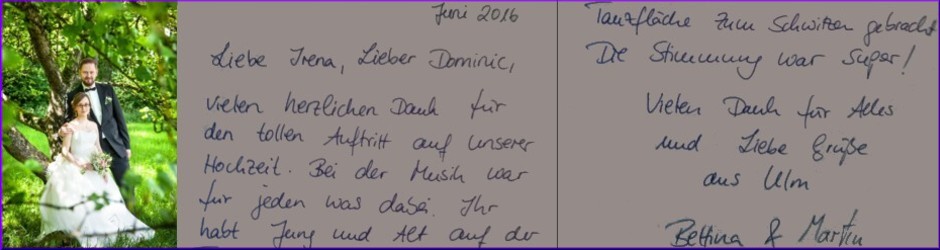 Juni 2016
Liebe Irena, Lieber Dominic,
vielen herzlichen Dank für
den tollen Auftritt auf unserer
Hochzeit. Bei der Musik war
für jeden was dabei. Ihr
habt Jung und Alt auf der
Tanzfläche zum Schwitzen gebracht
Die Stimmung war super!
Vielen Dank für Alles
und Liebe Grüße
aus Ulm
Bettina & Martin